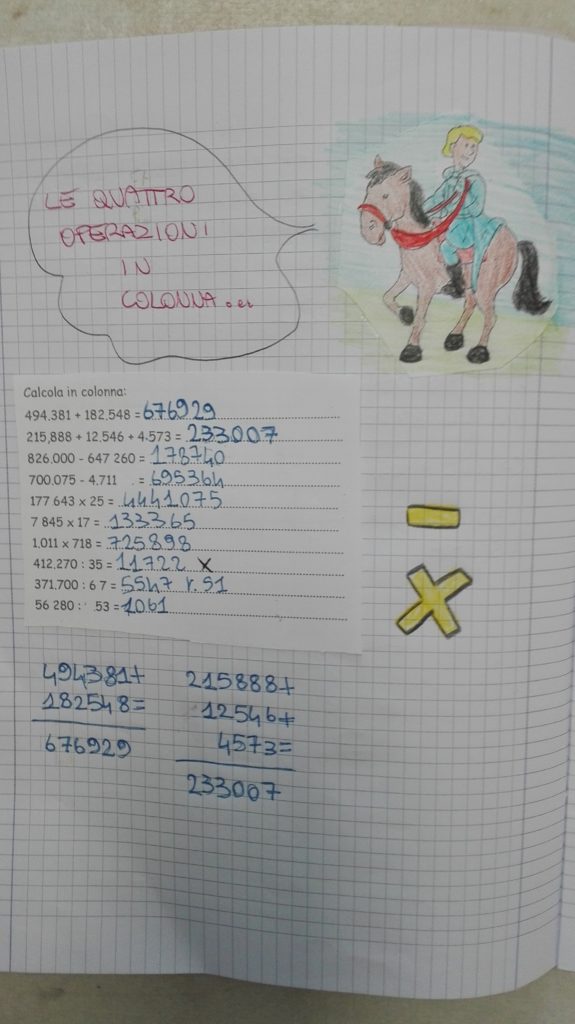 LE QUATTRO
OPERAZIONI
IN
COLONNA...
Calcola in colonna:
494.381 + 182.548 = 676929
215.888 + 12.546 + 4.573 = 233007
826.000 - 647 260 = 178740
700.075 - 4.711 = 695364
177 643 x 25 = 4441075
7 845 x 17 = 133365
1.011 x 718 = 725898
412.270 : 35 = 11722 x
371.700 : 6 7 = 5547 r. 51
56 280 : 53 = 1061
494381+
182548=
676929
215888+
12546+
4573=
233007